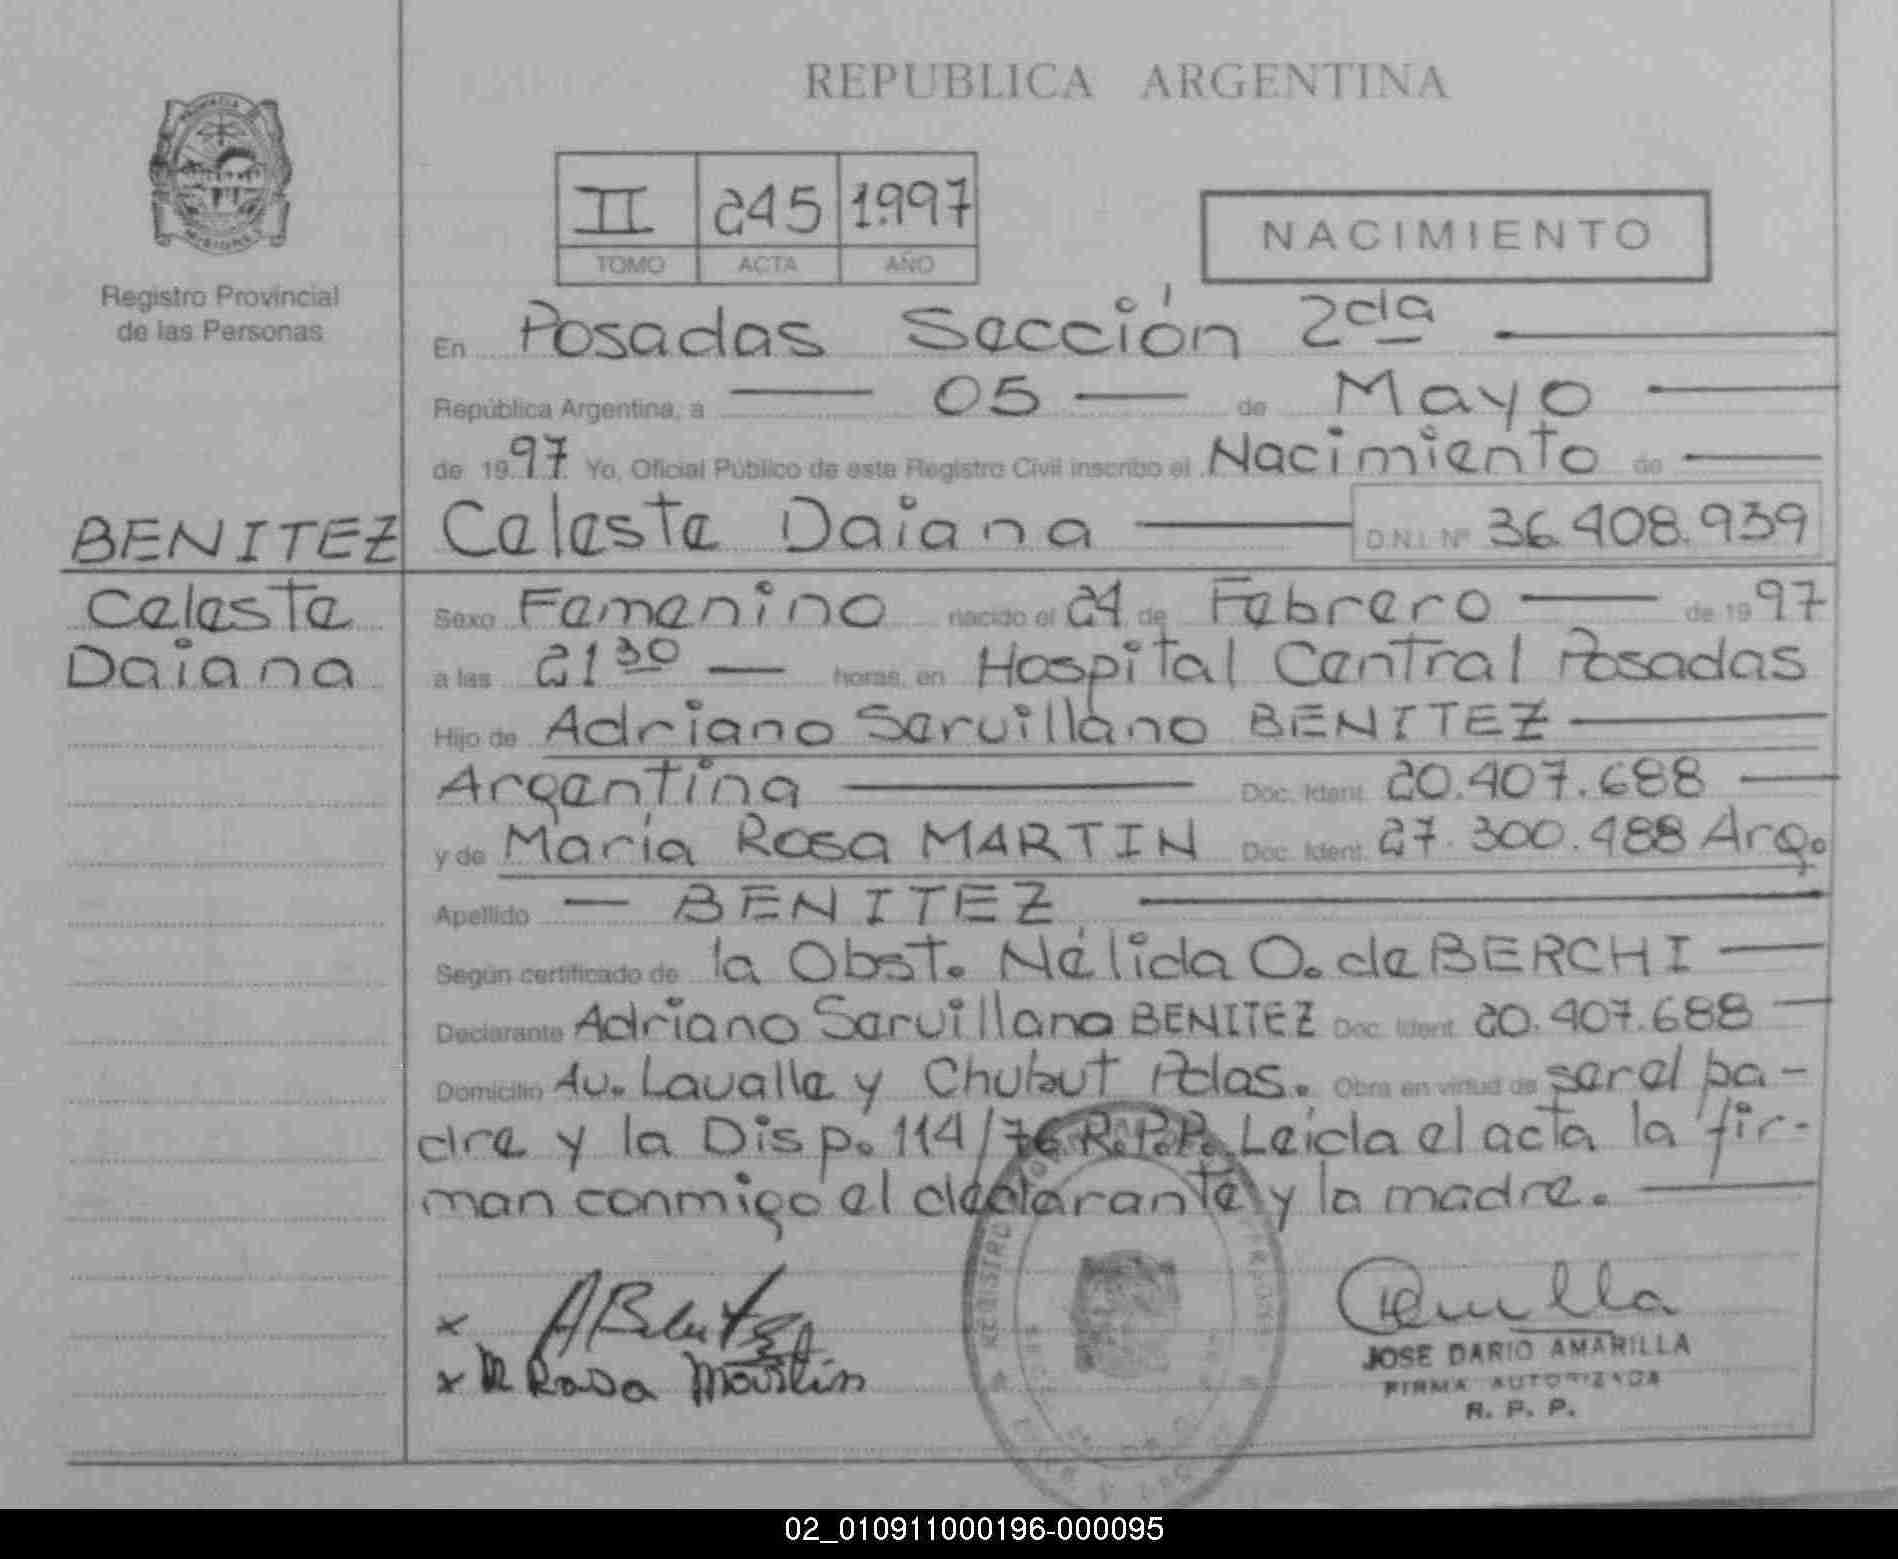 REPUBLICA ARGENTINA
PROVINCIA
MISIONES
Registro Provincial
de las Personas
II 245 1.997
TOMO ACTA AÑO
NACIMIENTO
En Posadas Sección 2da
República Argentina, a 05 de Mayo
de 1997 Yo, Oficial Público de este Registro Civil inscribo el Nacimiento de
BENITEZ Celeste Daiana D.N.I. Nº 36.408.939
Celeste
Daiana
Sexo Femenino nacido el 24 de Febrero de 1997
a las 21 30 horas, en Hospital Central Posadas
Hijo de Adriano Servillano BENITEZ
Argentina Doc. Ident. 20.407.688
y de María Rosa MARTIN Doc. Ident. 27.300.488 Arg.
Apellido BENITEZ
Según certificado de la Obst. Nélida O. de BERCHI
Declarante Adriano Servillano BENITEZ Doc. Ident. 20.407.688
Domicilio Av. Lavalle y Chubut Pdas. Obra en virtud de ser el pa-
dre y la Disp. 114/76 R.P.P. Leída el acta la fir-
man conmigo el declarante y la madre.
x A Benitez
x M Rosa Martin
REGISTRO
JOSE DARIO AMARILLA
FIRMA AUTORIZADA
R. P. P.
02_010911000196-000095